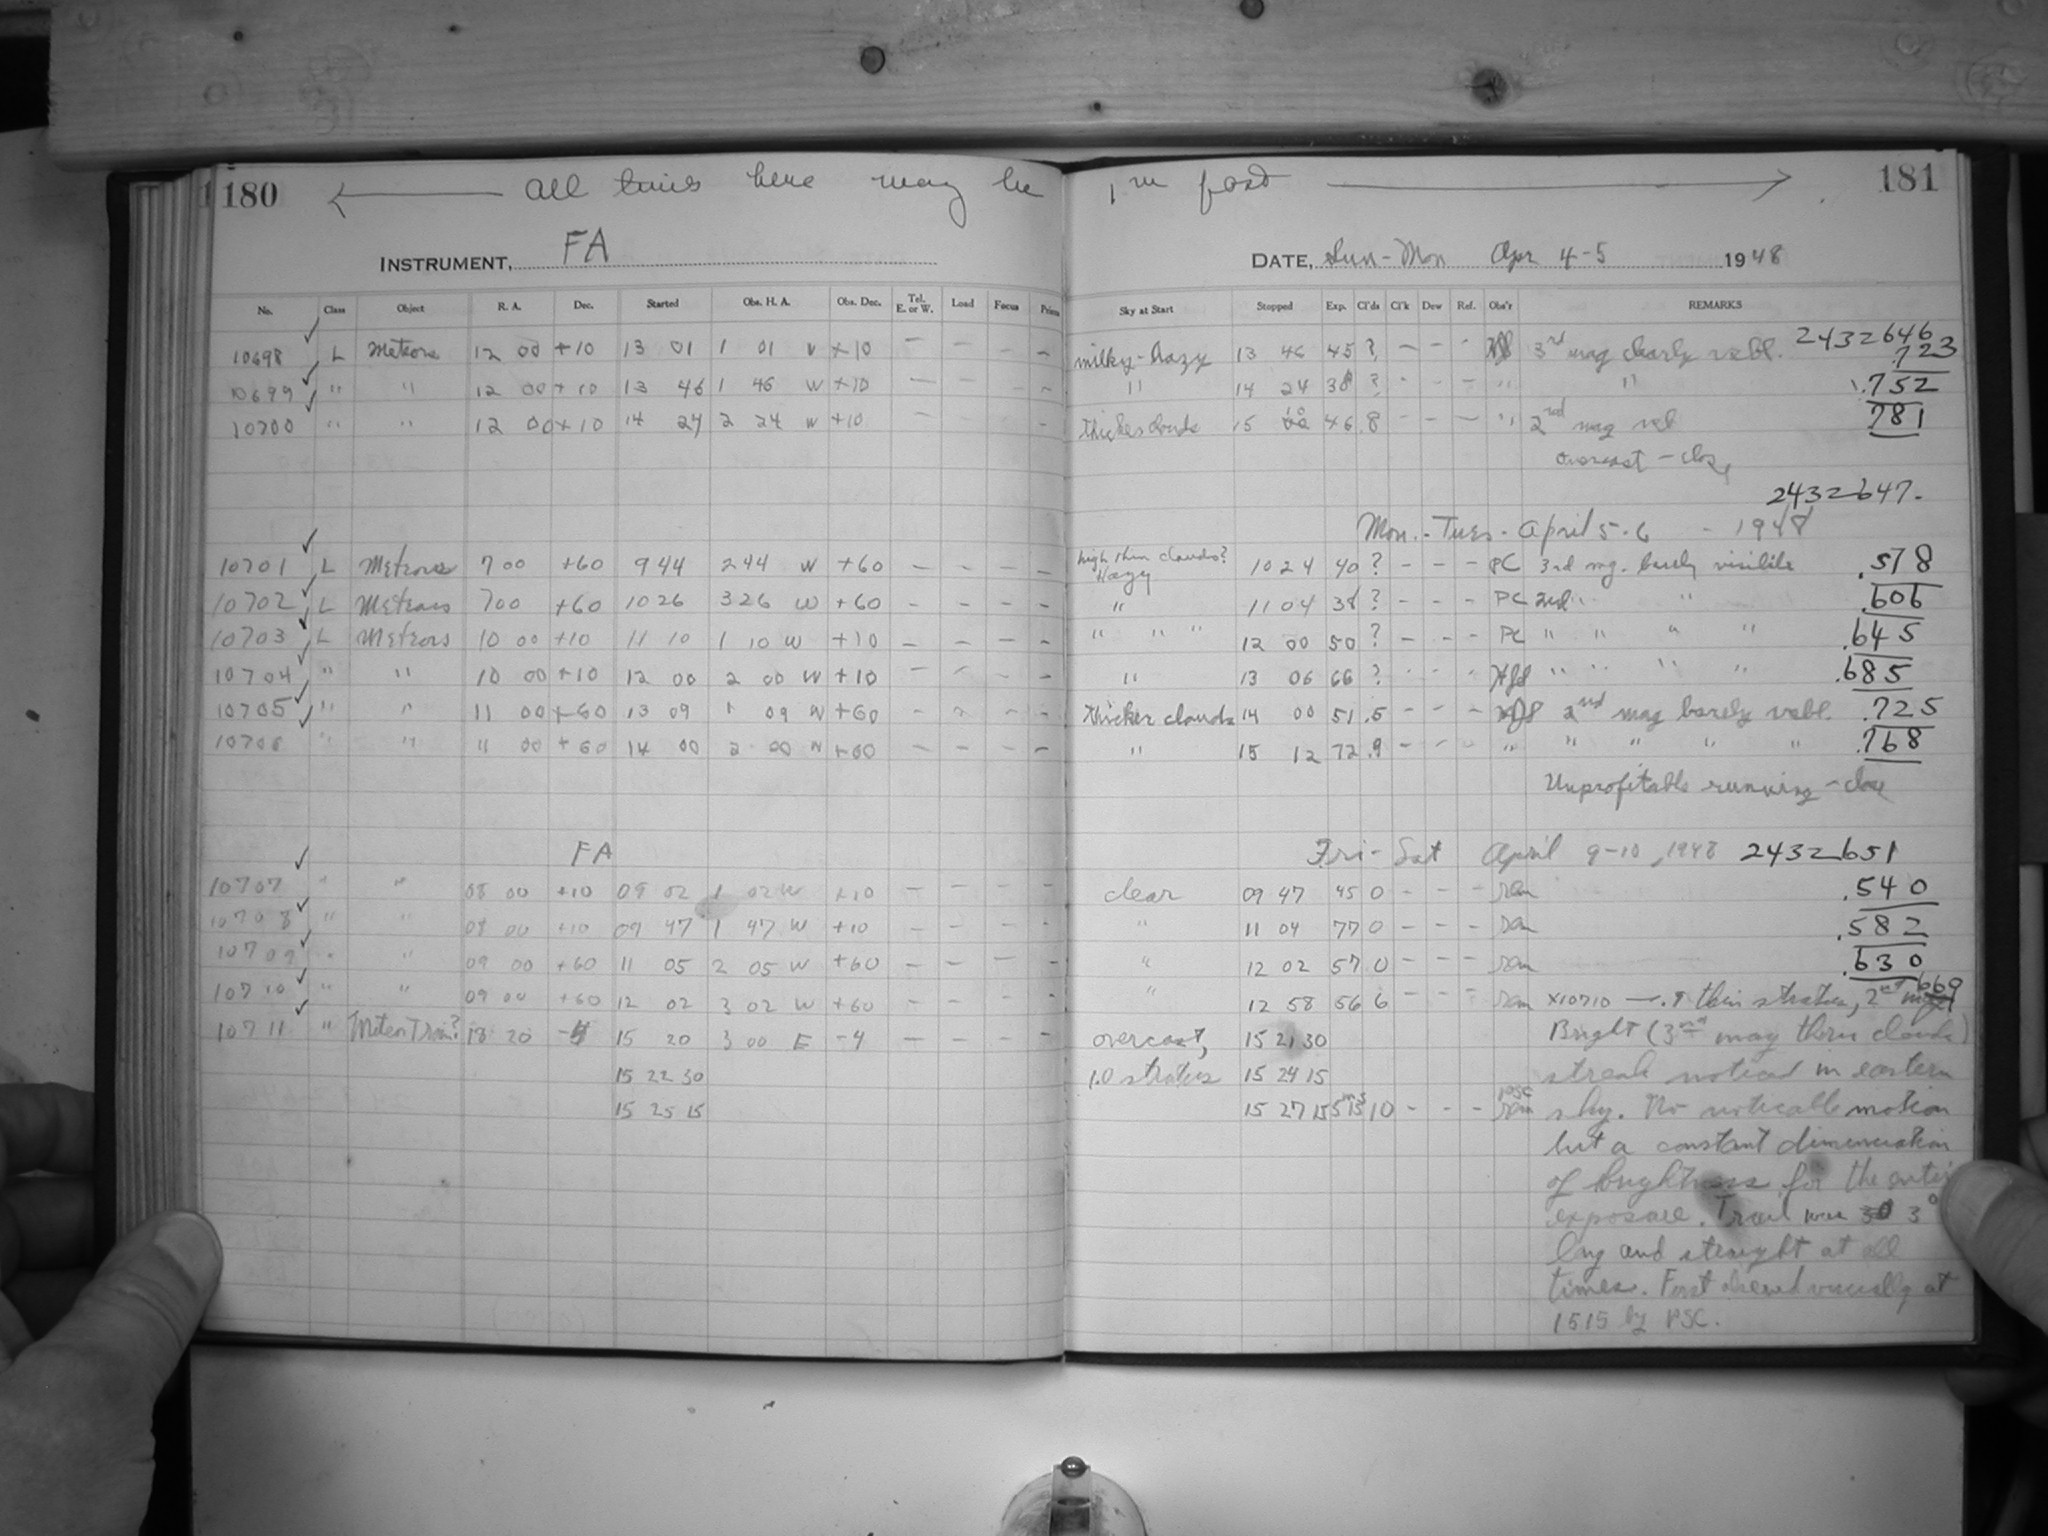 180 ← All times here may be 1m fast → 181
INSTRUMENT, FA DATE, Sun-Mon Apr 4-5 1948
No. Class Object R. A. Dec. Started Obs. H. A. Obs. Dec. Tel. E. or W. Load Focus Prism Sky at Start Stopped Exp. Cl'ds Cl'k Dew Ref. Obs'r REMARKS
2432646
10698 ✓ L Meteors 12 00 +10 13 01 1 01 W +10 — — — — milky-hazy 13 46 45 ? — — - 3rd mag clearly vsbl. .723
10699 ✓ " " 12 00 +10 13 46 1 46 W +10 — — — - " 14 24 38 ? - - - " " .752
10700 ✓ " " 12 00 +10 14 24 2 24 W +10 — - thicker clouds 15 10 46 .8 - - — " 2nd mag vsbl .781
overcast - close
2432647.
Mon.-Tues. April 5-6 - 1948
10701 ✓ L Meteors 7 00 +60 9 44 2 44 W +60 — — — — high thin clouds? Hazy 10 24 40 ? - - - PC 3rd mg. barely visible .578
10702 ✓ L Meteors 7 00 +60 10 26 3 26 W +60 - — — - " 11 04 38 ? - - - PC 2nd " " " .606
10703 ✓ L Meteors 10 00 +10 11 10 1 10 W +10 — — — - " " " 12 00 50 ? - - - PC " " " " .645
10704 ✓ " " 10 00 +10 12 00 2 00 W +10 — - - - " 13 06 66 ? - - - " " " " .685
10705 ✓ " " 11 00 +60 13 09 1 09 W +60 - - - - Thicker clouds 14 00 51 .5 - - - 2nd mag barely vsbl. .725
10706 ✓ " " 11 00 +60 14 00 2 00 W +60 — — — — " 15 12 72 .9 - - - " " " " " .768
Unprofitable running - close
FA Fri- Sat April 9-10, 1948 2432651
10707 ✓ " " 08 00 +10 09 02 1 02 W +10 — — — - clear 09 47 45 0 - - - .540
10708 ✓ " " 08 00 +10 09 47 1 47 W +10 — — — - " 11 04 77 0 — — - .582
10709 ✓ " " 09 00 +60 11 05 2 05 W +60 — — — - " 12 02 57 0 — — - .630
10710 ✓ " " 09 00 +60 12 02 3 02 W +60 — — — - " 12 58 56 6 - - - X10710 — thin stratus, 2nd .669
10711 ✓ " Meteor Train? 18 20 -4 15 20 3 00 E -4 — — — - overcast, 15 21 30 Bright (3rd mag thru clouds)
15 22 30 1.0 stratus 15 24 15 streak noticed in eastern
15 25 15 15 27 15 5m 15s 10 - - - PSC sky. No noticable motion
but a constant dimenuation
of brightness for the entire
exposure. Trail was 3°
long and straight at all
times. First observed visually at
1515 by PSC.